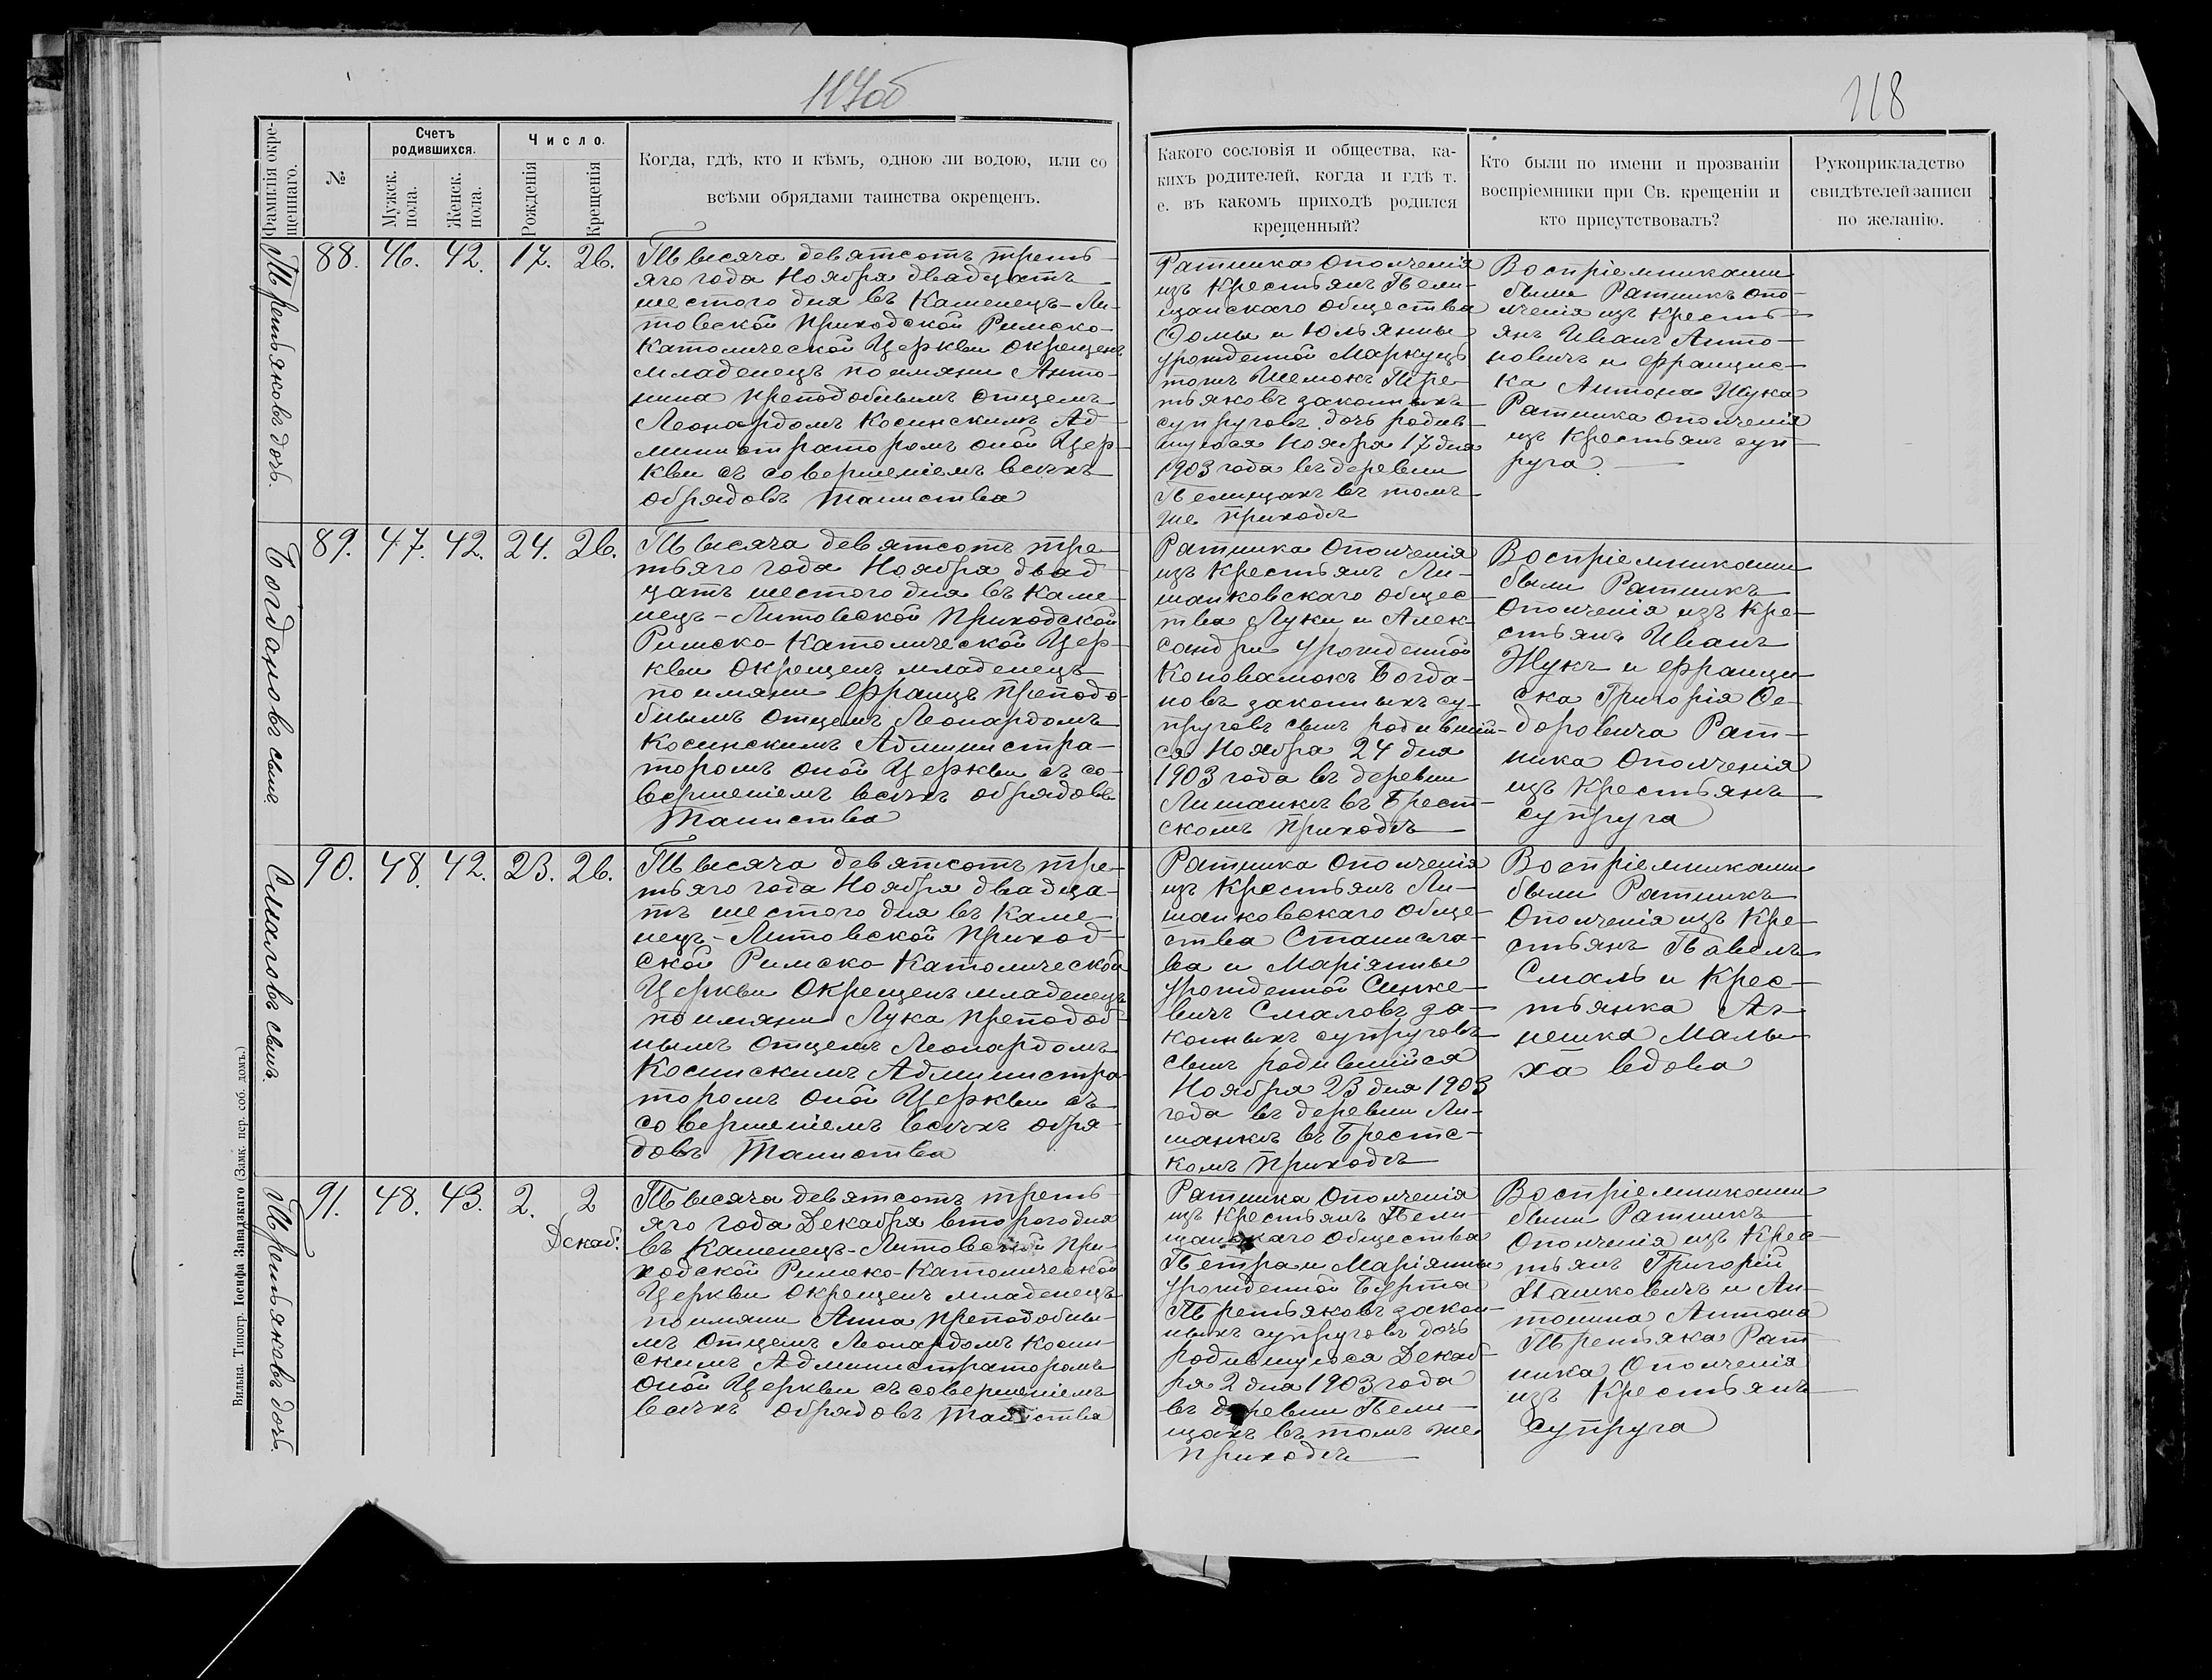 117об
118
Фамилія окре-
щеннаго.
№
Счетъ
родившихся.
Мужск.
пола.
Женск.
пола.
Число.
Рожденія
Крещенія
Когда, гдѣ, кто и кѣмъ, одною ли водою, или со
всѣми обрядами таинства окрещенъ.
Какого сословія и общества, ка-
кихъ родителей, когда и гдѣ т.
е. въ какомъ приходѣ родился
крещенный?
Кто были по имени и прозваніи
воспріемники при Св. крещеніи и
кто присутствовалъ?
Рукоприкладство
свидѣтелей записи
по желанію.
Третьяковъ дочь.
88. 46. 42. 17. 26.
Тысяча девятсотъ треть-
яго года Ноября двадцать
шестого дня въ Каменецъ-Ли-
товской Приходской Римско-
Католической Церкви окрещенъ
младенецъ по имяни Анто-
нина Преподобнымъ отцемъ
Леонардомъ Косинскимъ Ад-
министраторомъ оной Цер-
кви съ совершеніемъ всѣхъ
обрядовъ таинства
Ратника Ополченія
изъ Крестьянъ Пели-
щанскаго общества
Ѳомы и Юльянны
урожденной Маркуць
Третьяковъ законныхъ
супруговъ дочь родив-
шуюся Ноября 17 дня
1903 года въ деревни
Пелищахъ въ томъ-
же приходѣ
Воспріемниками
были Ратникъ опо-
лченія изъ Кресть-
янъ Иванъ Анто-
новичъ и Францис-
ка Антона Жука
Ратника ополченія
изъ Крестьянъ суп-
руга.
Богдановъ сынъ.
89. 47. 42. 24. 26.
Тысяча девятсотъ тре-
тьяго года Ноября двад-
цать шестого дня въ Каме-
нецъ-Литовской Приходской
Римско-Католической Цер-
кви окрещенъ младенецъ
по имяни Францъ Преподо-
бнымъ отцемъ Леонардомъ
Косинскимъ Администра-
торомъ оной Церкви съ со-
вершеніемъ всѣхъ обрядовъ
Таинства
Ратника Ополченія
изъ Крестьянъ Ли-
шанковскаго общес-
тва Луки и Алек-
сандры урожденной
Коновалюкъ Богда-
новъ законныхъ су-
пруговъ сынъ родивший-
ся Ноября 24 дня
1903 года въ деревни
Лишанкѣ въ Брест-
скомъ приходѣ
Воспріемниками
были Ратникъ
Ополченія изъ Кре-
стьянъ Иванъ
Жукъ и Францис-
ска Григорія Ѳе-
доровича Рат-
ника Ополченія
изъ Крестьянъ
супруга
Смаловъ сынъ.
90. 48. 42. 23. 26.
Тысяча девятсотъ тре-
тьяго года Ноября двадца-
ть шестого дня въ Каме-
нецъ-Литовской Приход-
ской Римско-Католической
Церкви Окрещенъ младенецъ
по имяни Лука Преподоб-
нымъ отцемъ Леонардомъ
Косинскимъ Администра-
торомъ оной Церкви съ
совершеніемъ всѣхъ обря-
довъ Таинства
Ратника Ополченія
изъ Крестьянъ Ли-
шанковскаго обще-
ства Станисла-
ва и Маріянны
урожденной Синке-
вичъ Смаловъ за-
конныхъ супруговъ
сынъ родившійся
Ноября 23 дня 1903
года въ деревни Ли-
шанкѣ въ Брестс-
комъ приходѣ
Воспріемниками
были Ратникъ
Ополченія изъ Кре-
стьянъ Павелъ
Смаль и Крес-
тьянка Аг-
нешка Малы-
ха вдова
Третьяковъ дочь.
91. 48. 43. 2. 2
Декаб.
Тысяча девятсотъ треть-
яго года Декабря второго дня
въ Каменецъ-Литовской При-
ходской Римско-Католической
Церкви Окрещенъ младенецъ
по имяни Анна Преподобны-
мъ Отцемъ Леонардомъ Косин-
скимъ Администраторомъ
оной Церкви съ совершеніемъ
всѣхъ обрядовъ таинства
Ратника Ополченія
изъ Крестьянъ Пели-
щанскаго общества
Петра и Маріянны
урожденной Берта
Третьяковъ закон-
ныхъ супруговъ дочь
родившуюся Декаб-
ря 2 дня 1903 года
въ деревни Пели-
щахъ въ томъ же
приходѣ
Воспріемниками
были Ратникъ
Ополченія изъ Крес-
тьянъ Григорій
Сташковичъ и Ан-
тонина Антона
Третьяка Рат-
ника Ополченія
изъ Крестьянъ
супруга
Вильна. Типогр. Іосифа Завадзкаго (Замк. пер. соб. домъ.)